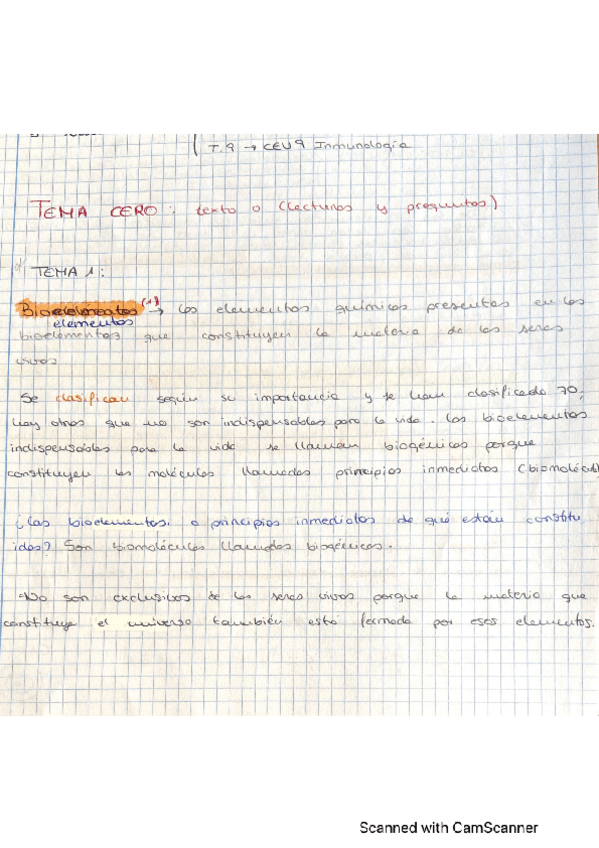 T.9 → CEU9 Inmunología
TEMA CERO: texto o (lecturas y preguntas)
TEMA 1:
Bioelementos (*) → los elementos químicos presentes en los
elementos
bioelementos que constituyen la materia de los seres
vivos
Se clasifican según su importancia y se han clasificado 70,
hay otros que no son indispensables para la vida. Los bioelementos
indispensables para la vida se llaman biogénicos porque
constituyen las moléculas llamadas principios inmediatos (biomolécul
¿Las bioelementos. o principios inmediatos de qué están constitu
idos? Son biomoléculas llamadas biogénicos.
No son exclusivos de los seres vivos porque la materia que
constituye el universo también está formada por esos elementos.
Scanned with CamScanner